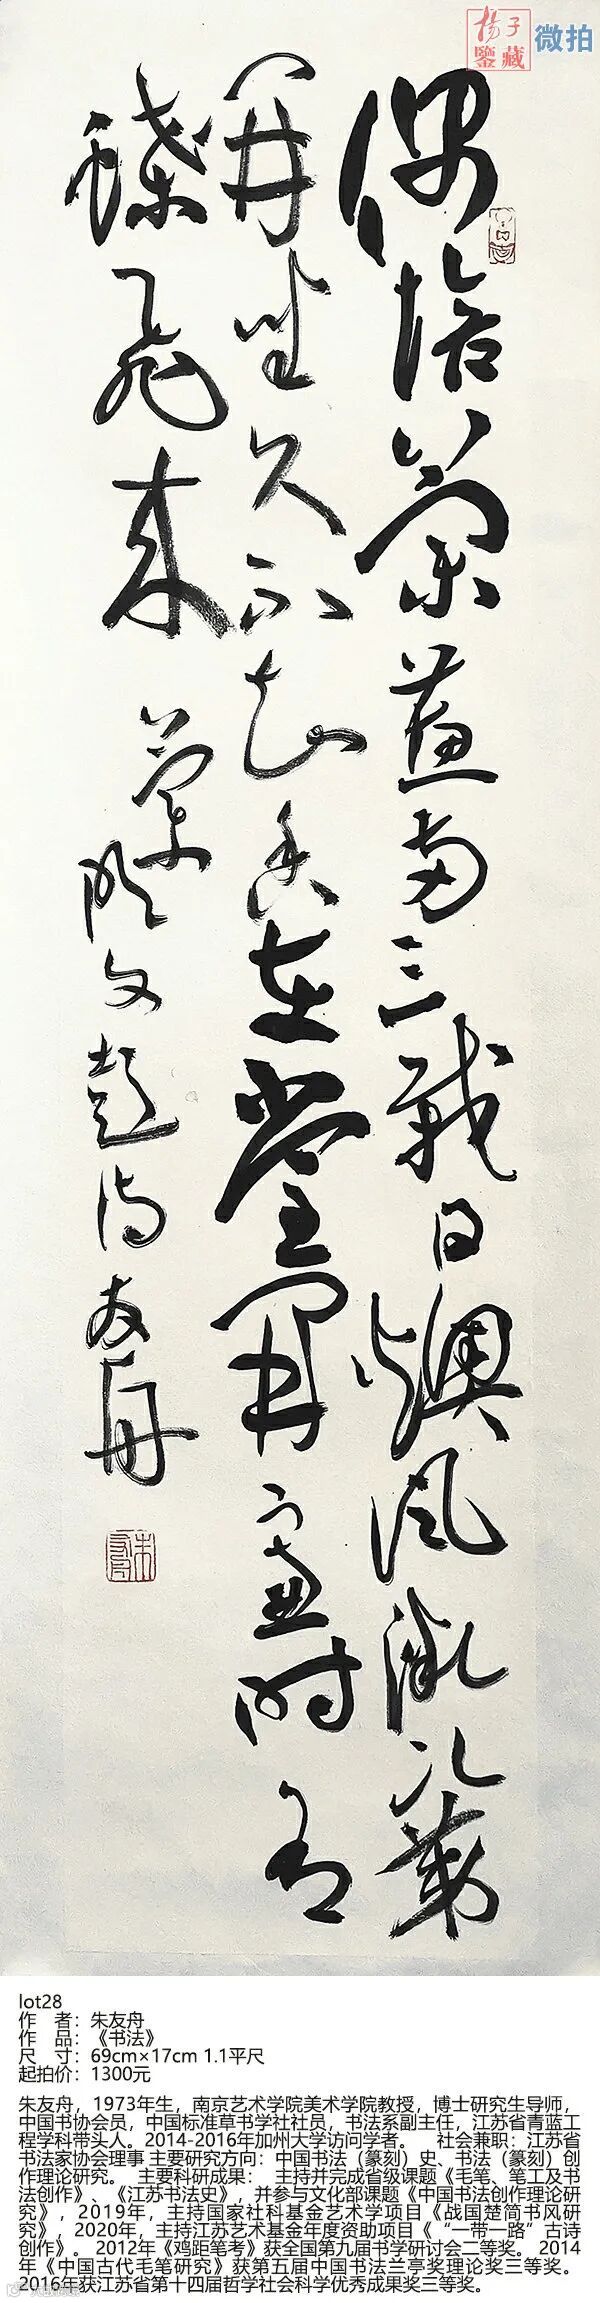 楊子
鑒藏
微拍
偶培蘭蕙兩三栽日燠風微次第
開坐久不知香在室開窗時有
蝶飛來
草明文彭詩友舟
lot28
作 者：朱友舟
作 品：《书法》
尺 寸：69cm×17cm 1.1平尺
起拍价：1300元
朱友舟，1973年生，南京艺术学院美术学院教授，博士研究生导师，
中国书协会员，中国标准草书学社社员，书法系副主任，江苏省青蓝工
程学科带头人。2014-2016年加州大学访问学者。 社会兼职：江苏省
书法家协会理事 主要研究方向：中国书法（篆刻）史、书法（篆刻）创
作理论研究。 主要科研成果： 主持并完成省级课题《毛笔、笔工及书
法创作》、《江苏书法史》，并参与文化部课题《中国书法创作理论研
究》，2019年，主持国家社科基金艺术学项目《战国楚简书风研
究》，2020年，主持江苏艺术基金年度资助项目《“一带一路”古诗
创作》。2012年《鸡距笔考》获全国第九届书学研讨会二等奖。 2014
年《中国古代毛笔研究》获第五届中国书法兰亭奖理论奖三等奖。
2016年获江苏省第十四届哲学社会科学优秀成果奖三等奖。